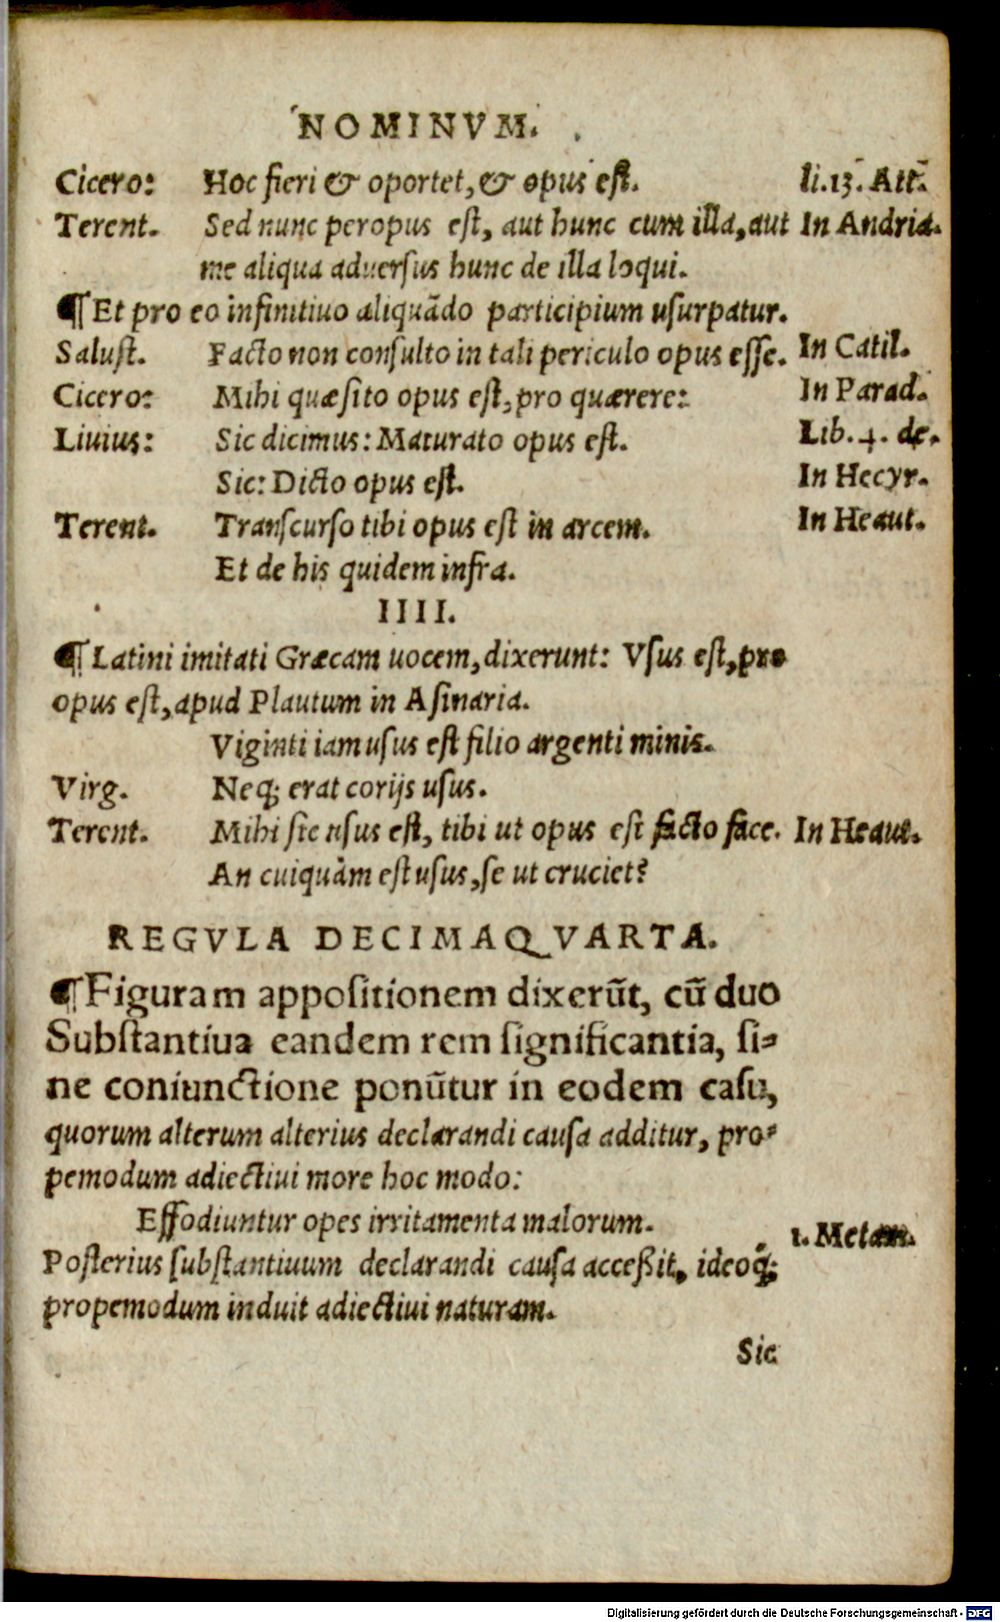 NOMINVM.
Cicero: Hoc fieri & oportet, & opus est. li.13. Att.
Terent. Sed nunc peropus est, aut hunc cum illa, aut In Andria.
me aliqua aduersus hunc de illa loqui.
¶ Et pro eo infinitiuo aliquādo participium usurpatur.
Salust. Facto non consulto in tali periculo opus esse. In Catil.
Cicero: Mihi quæsito opus est, pro quærere: In Parad.
Liuius: Sic dicimus: Maturato opus est. Lib. 4. de.
Sic: Dicto opus est. In Hecyr.
Terent. Transcurso tibi opus est in arcem. In Heaut.
Et de his quidem infra.
IIII.
¶ Latini imitati Græcam uocem, dixerunt: Vsus est, pro
opus est, apud Plautum in Asinaria.
Viginti iam usus est filio argenti minis.
Virg. Neq; erat corijs usus.
Terent. Mihi sic usus est, tibi ut opus est facto face. In Heaut.
An cuiquàm est usus, se ut cruciet?
REGVLA DECIMAQVARTA.
¶ Figuram appositionem dixerūt, cū duo
Substantiua eandem rem significantia, si-
ne coniunctione ponūtur in eodem casu,
quorum alterum alterius declarandi causa additur, pro-
pemodum adiectiui more hoc modo:
Effodiuntur opes irritamenta malorum. 1. Metam.
Posterius substantiuum declarandi causa accessit, ideoq́;
propemodum induit adiectiui naturam.
Sic
Digitalisierung gefördert durch die Deutsche Forschungsgemeinschaft - DFG